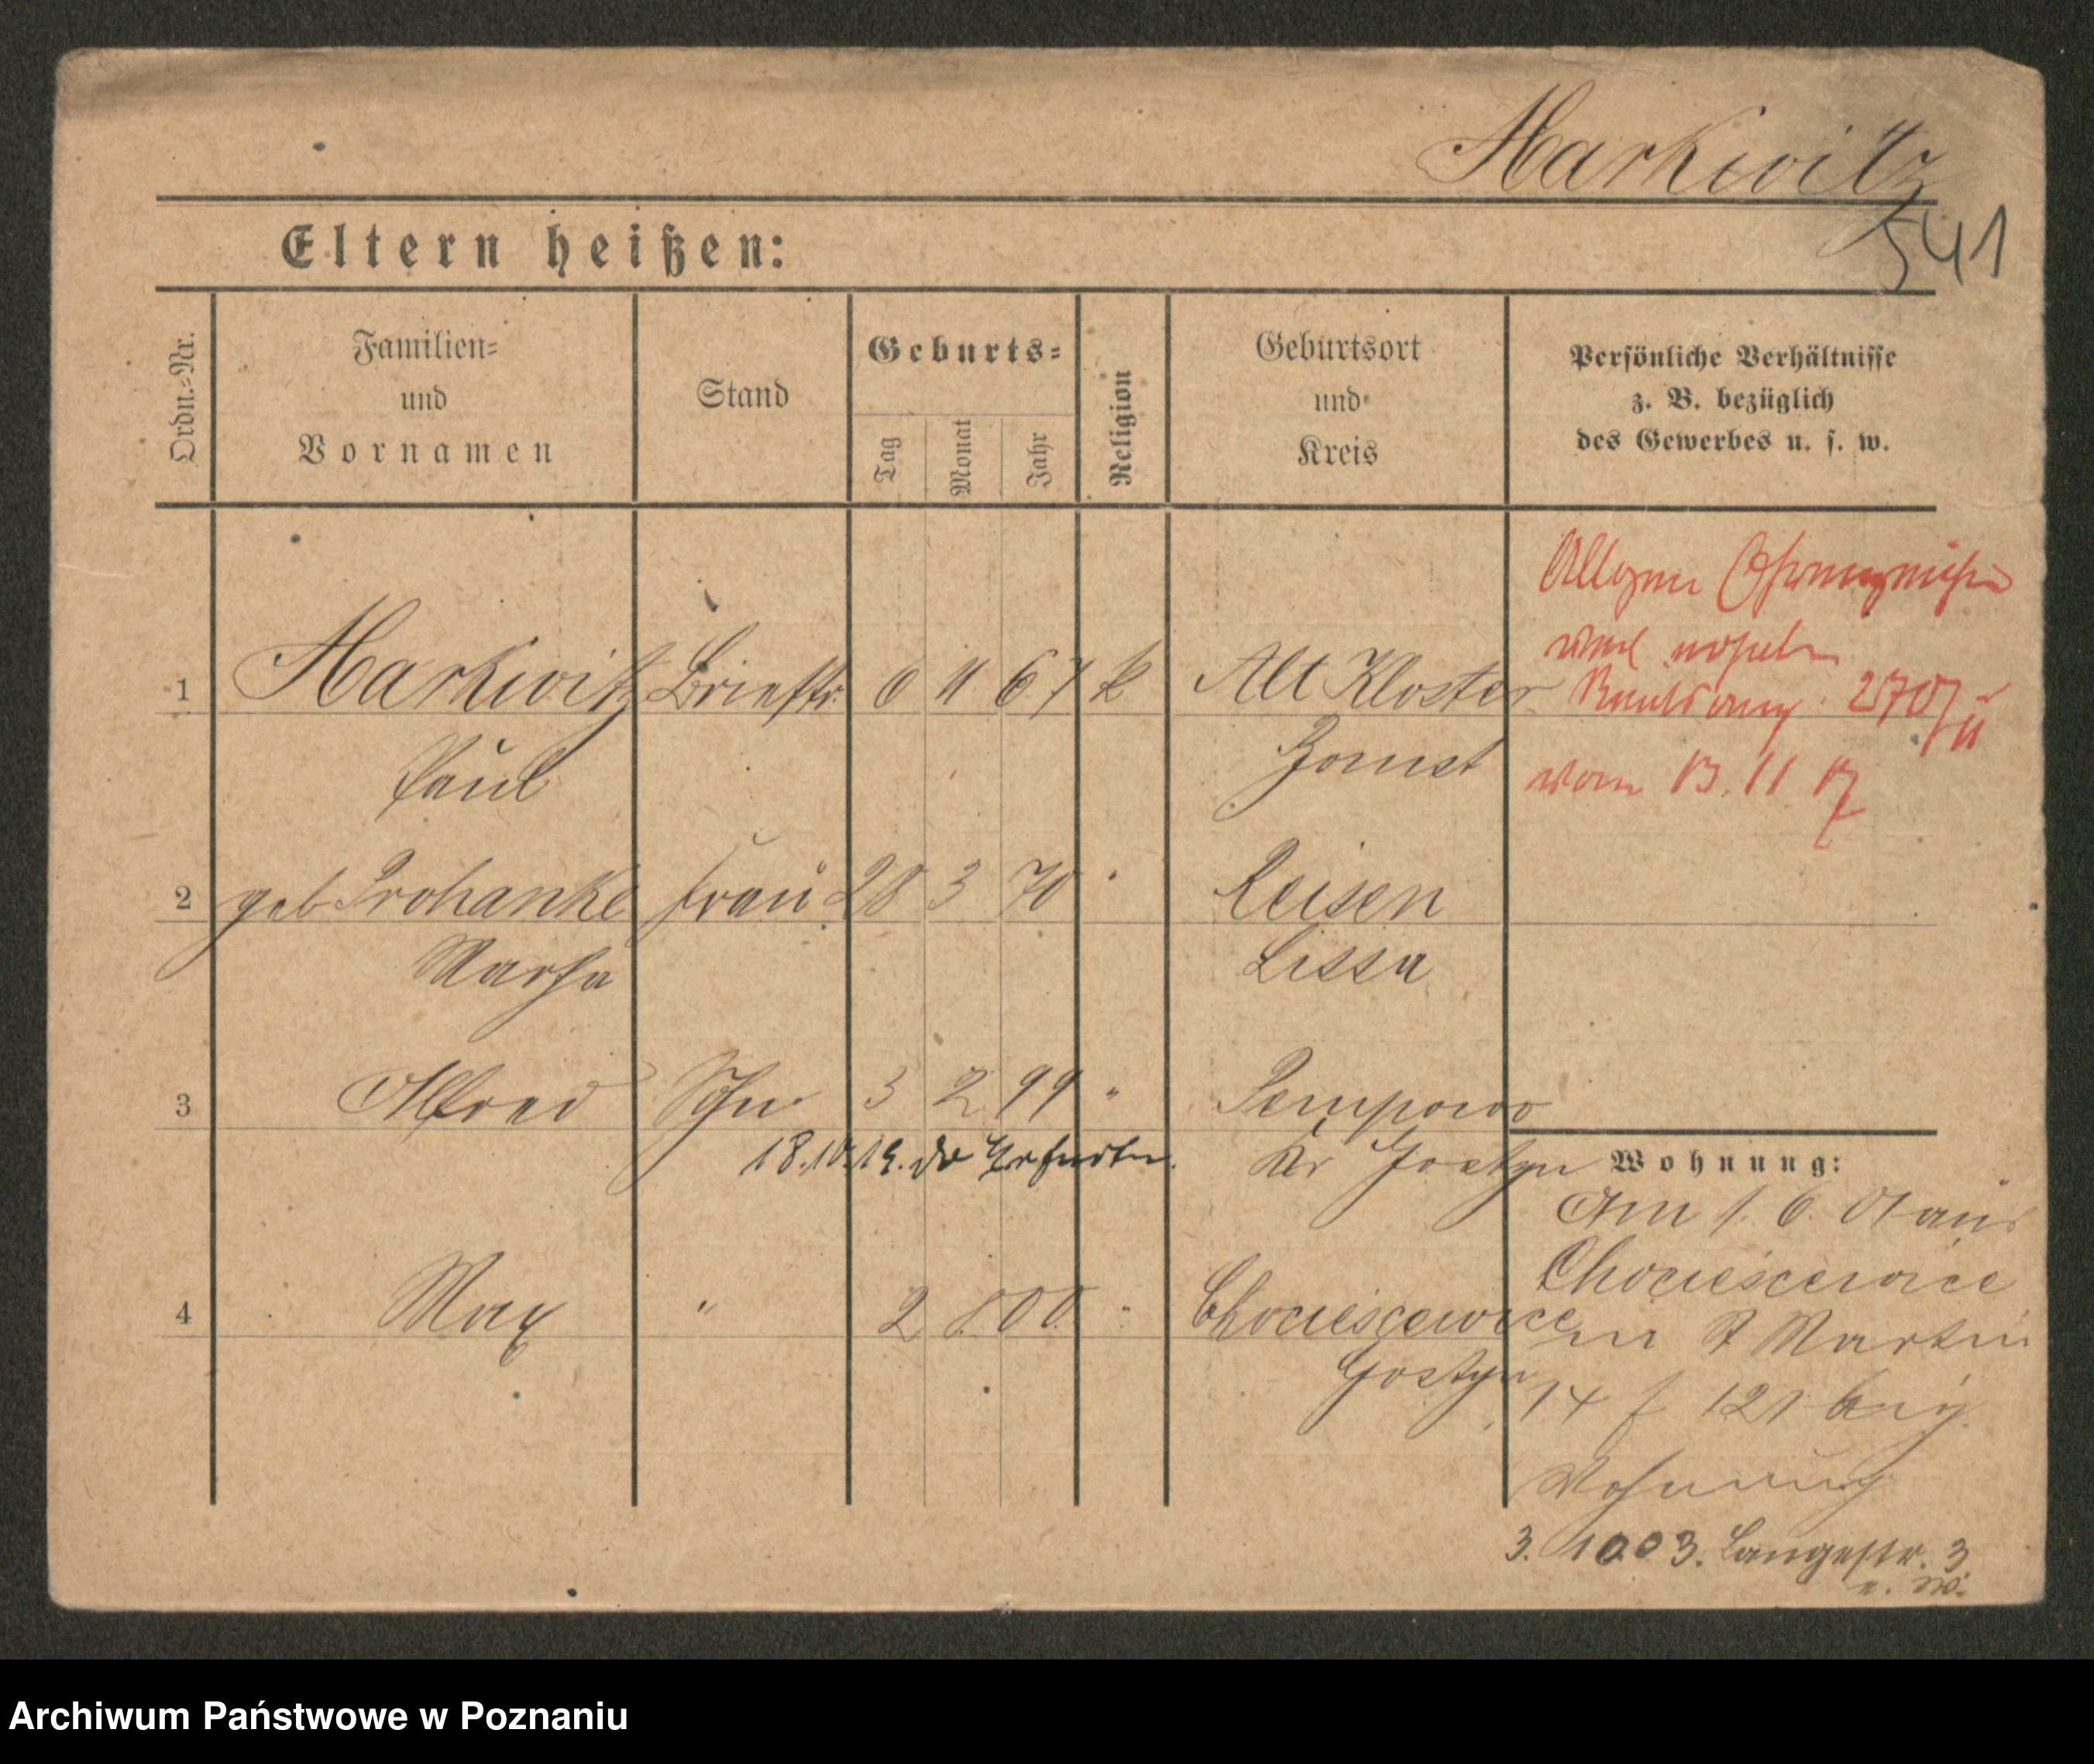 Markwitz
541
Eltern heißen:
Ordn.-Nr.
Familien-
und
Vornamen
Stand
Geburts-
Tag
Monat
Jahr
Religion
Geburtsort
und
Kreis
Persönliche Verhältnisse
z. B. bezüglich
des Gewerbes u. s. w.
1 Markwitz Brieftr. 6 11 67 k Alt Kloster
Paul Bomst
vom 13. 11. 17
2 geb Prohanke Frau 28 3 70 " Reisen
Martha Lissa
3 Alfred Sohn 3 2 99 " Pempowo
18.10.19. Kr Gostyn
Wohnung:
Am 1. 6. 01 aus
Chocieścewice
4 Max " 2 8 00 " Chocieścewice
Gostyn
St Martin
14 f 121 bez.
Wohnung
3. 10 03. Langestr. 3
Archiwum Państwowe w Poznaniu